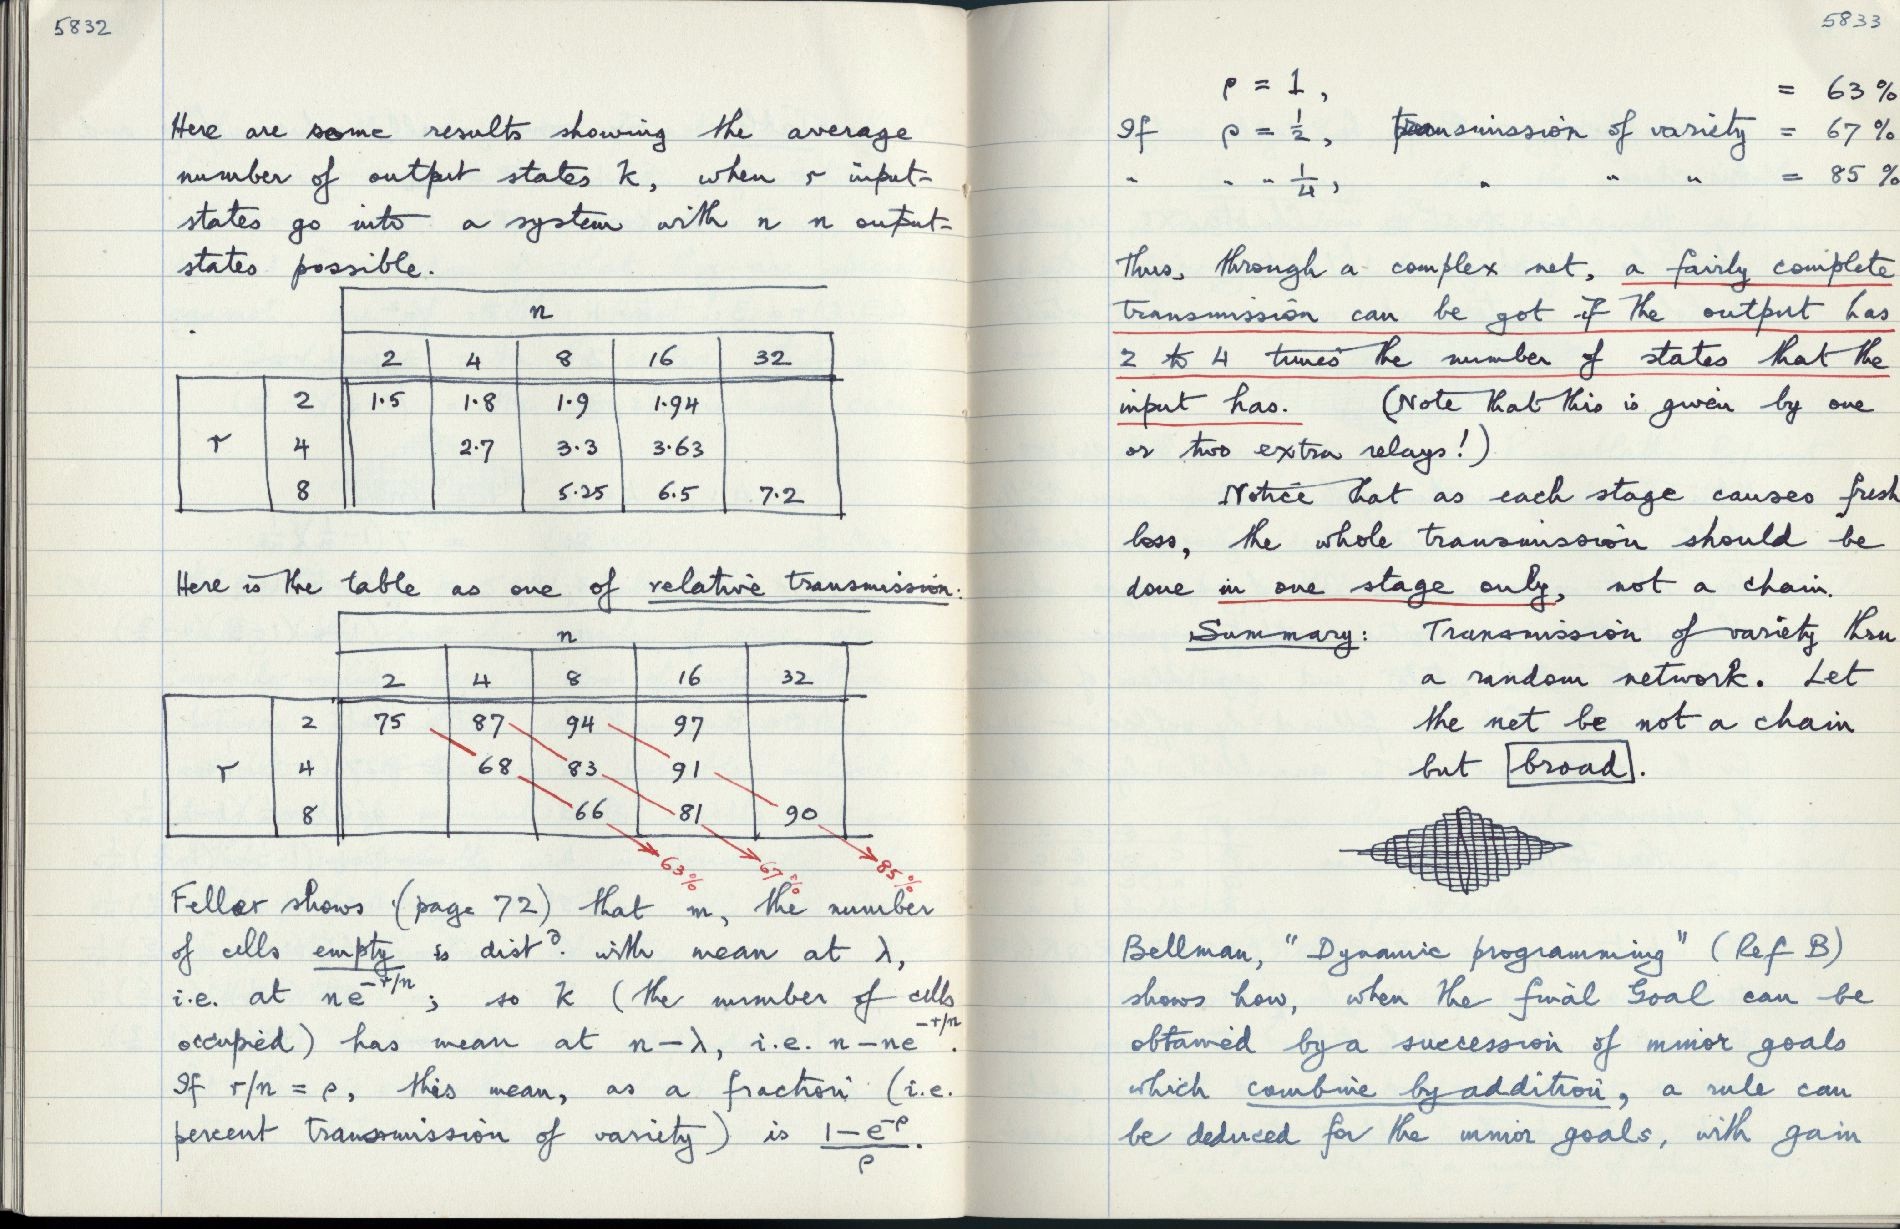 5832
Here are some results showing the average
number of output states k, when r input-
states go into a system with n n ouput-
states possible.
n
2 4 8 16 32
2 1·5 1·8 1·9 1·94
r 4 2·7 3·3 3·63
8 5·25 6·5 7·2
Here is the table as one of relative transmission:
n
2 4 8 16 32
2 75 87 94 97
r 4 68 83 91
8 66 81 90
63% 67% 85%
Feller shows (page 72) that m, the number
of cells empty is distᵈ. with mean at λ,
i.e. at ne^-r/n; so k (the number of cells
occupied) has mean at n−λ, i.e. n−ne^-r/n.
If r/n = ρ, this mean, as a fraction (i.e.
percent transmission of variety) is (1−e^-ρ)/ρ.
5833
ρ = 1, = 63%
If ρ = 1/2, transmission of variety = 67%
" " " 1/4, " " " = 85%
Thus, through a complex net, a fairly complete
transmission can be got if the output has
2 to 4 times the number of states that the
input has. (Note that this is given by one
or two extra relays!)
Notice that as each stage causes fresh
loss, the whole transmission should be
done in one stage only, not a chain.
Summary: Transmission of variety thru
a random network. Let
the net be not a chain
but broad.
Bellman, "Dynamic programming" (Ref B)
shows how, when the final Goal can be
obtained by a succession of minor goals
which combine by addition, a rule can
be deduced for the minor goals, with gain